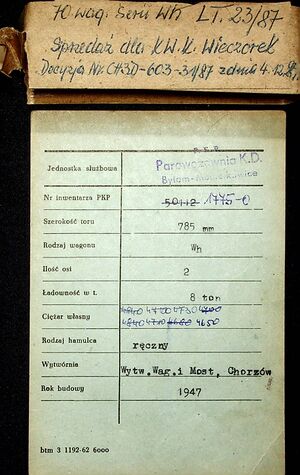 10 wag. Serii Wh LT. 23/87
Sprzedaż dla KW.K. Wieczorek
Decyzja Nr. CH3D-603-31/87 z dnia 4.12.87
P. K. P.
Parowozownia K.D.
Jednostka służbowa
Bytom-Karb Wąsk.
Nr inwentarza PKP 50112 1775-0
Szerokość toru 785 mm
Rodzaj wagonu Wh
Ilość osi 2
Ładowność w t. 8 ton
Ciężar własny 4840 4720 4730 4700
4840 4710 4680 4650
Rodzaj hamulca ręczny
Wytwórnia Wytw.Wag.i Most. Chorzów
Rok budowy 1947
btm 3 1192-62 6000